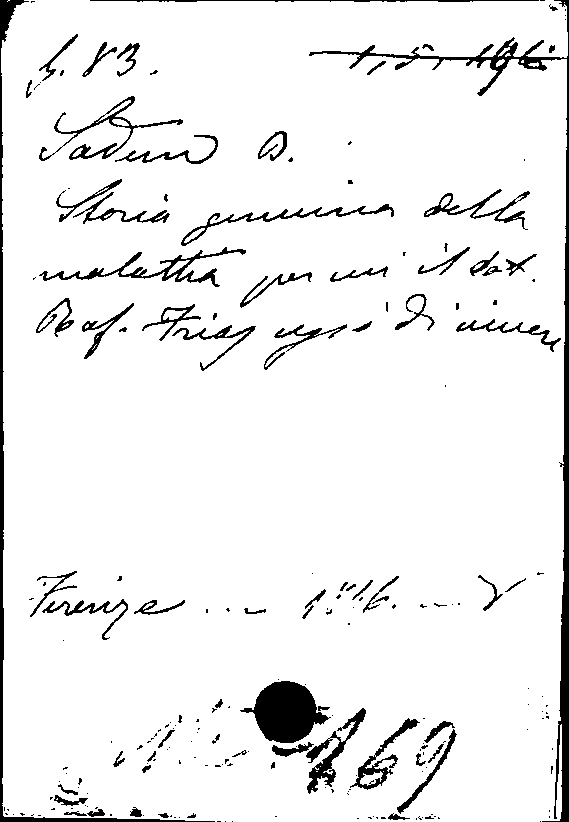 b. 83. 1, 5, 196
Sadun B.
Storia genuina della
malattia per cui il dot.
Raf. Frias cessò di vivere
Firenze ... 1846. ... 8
169